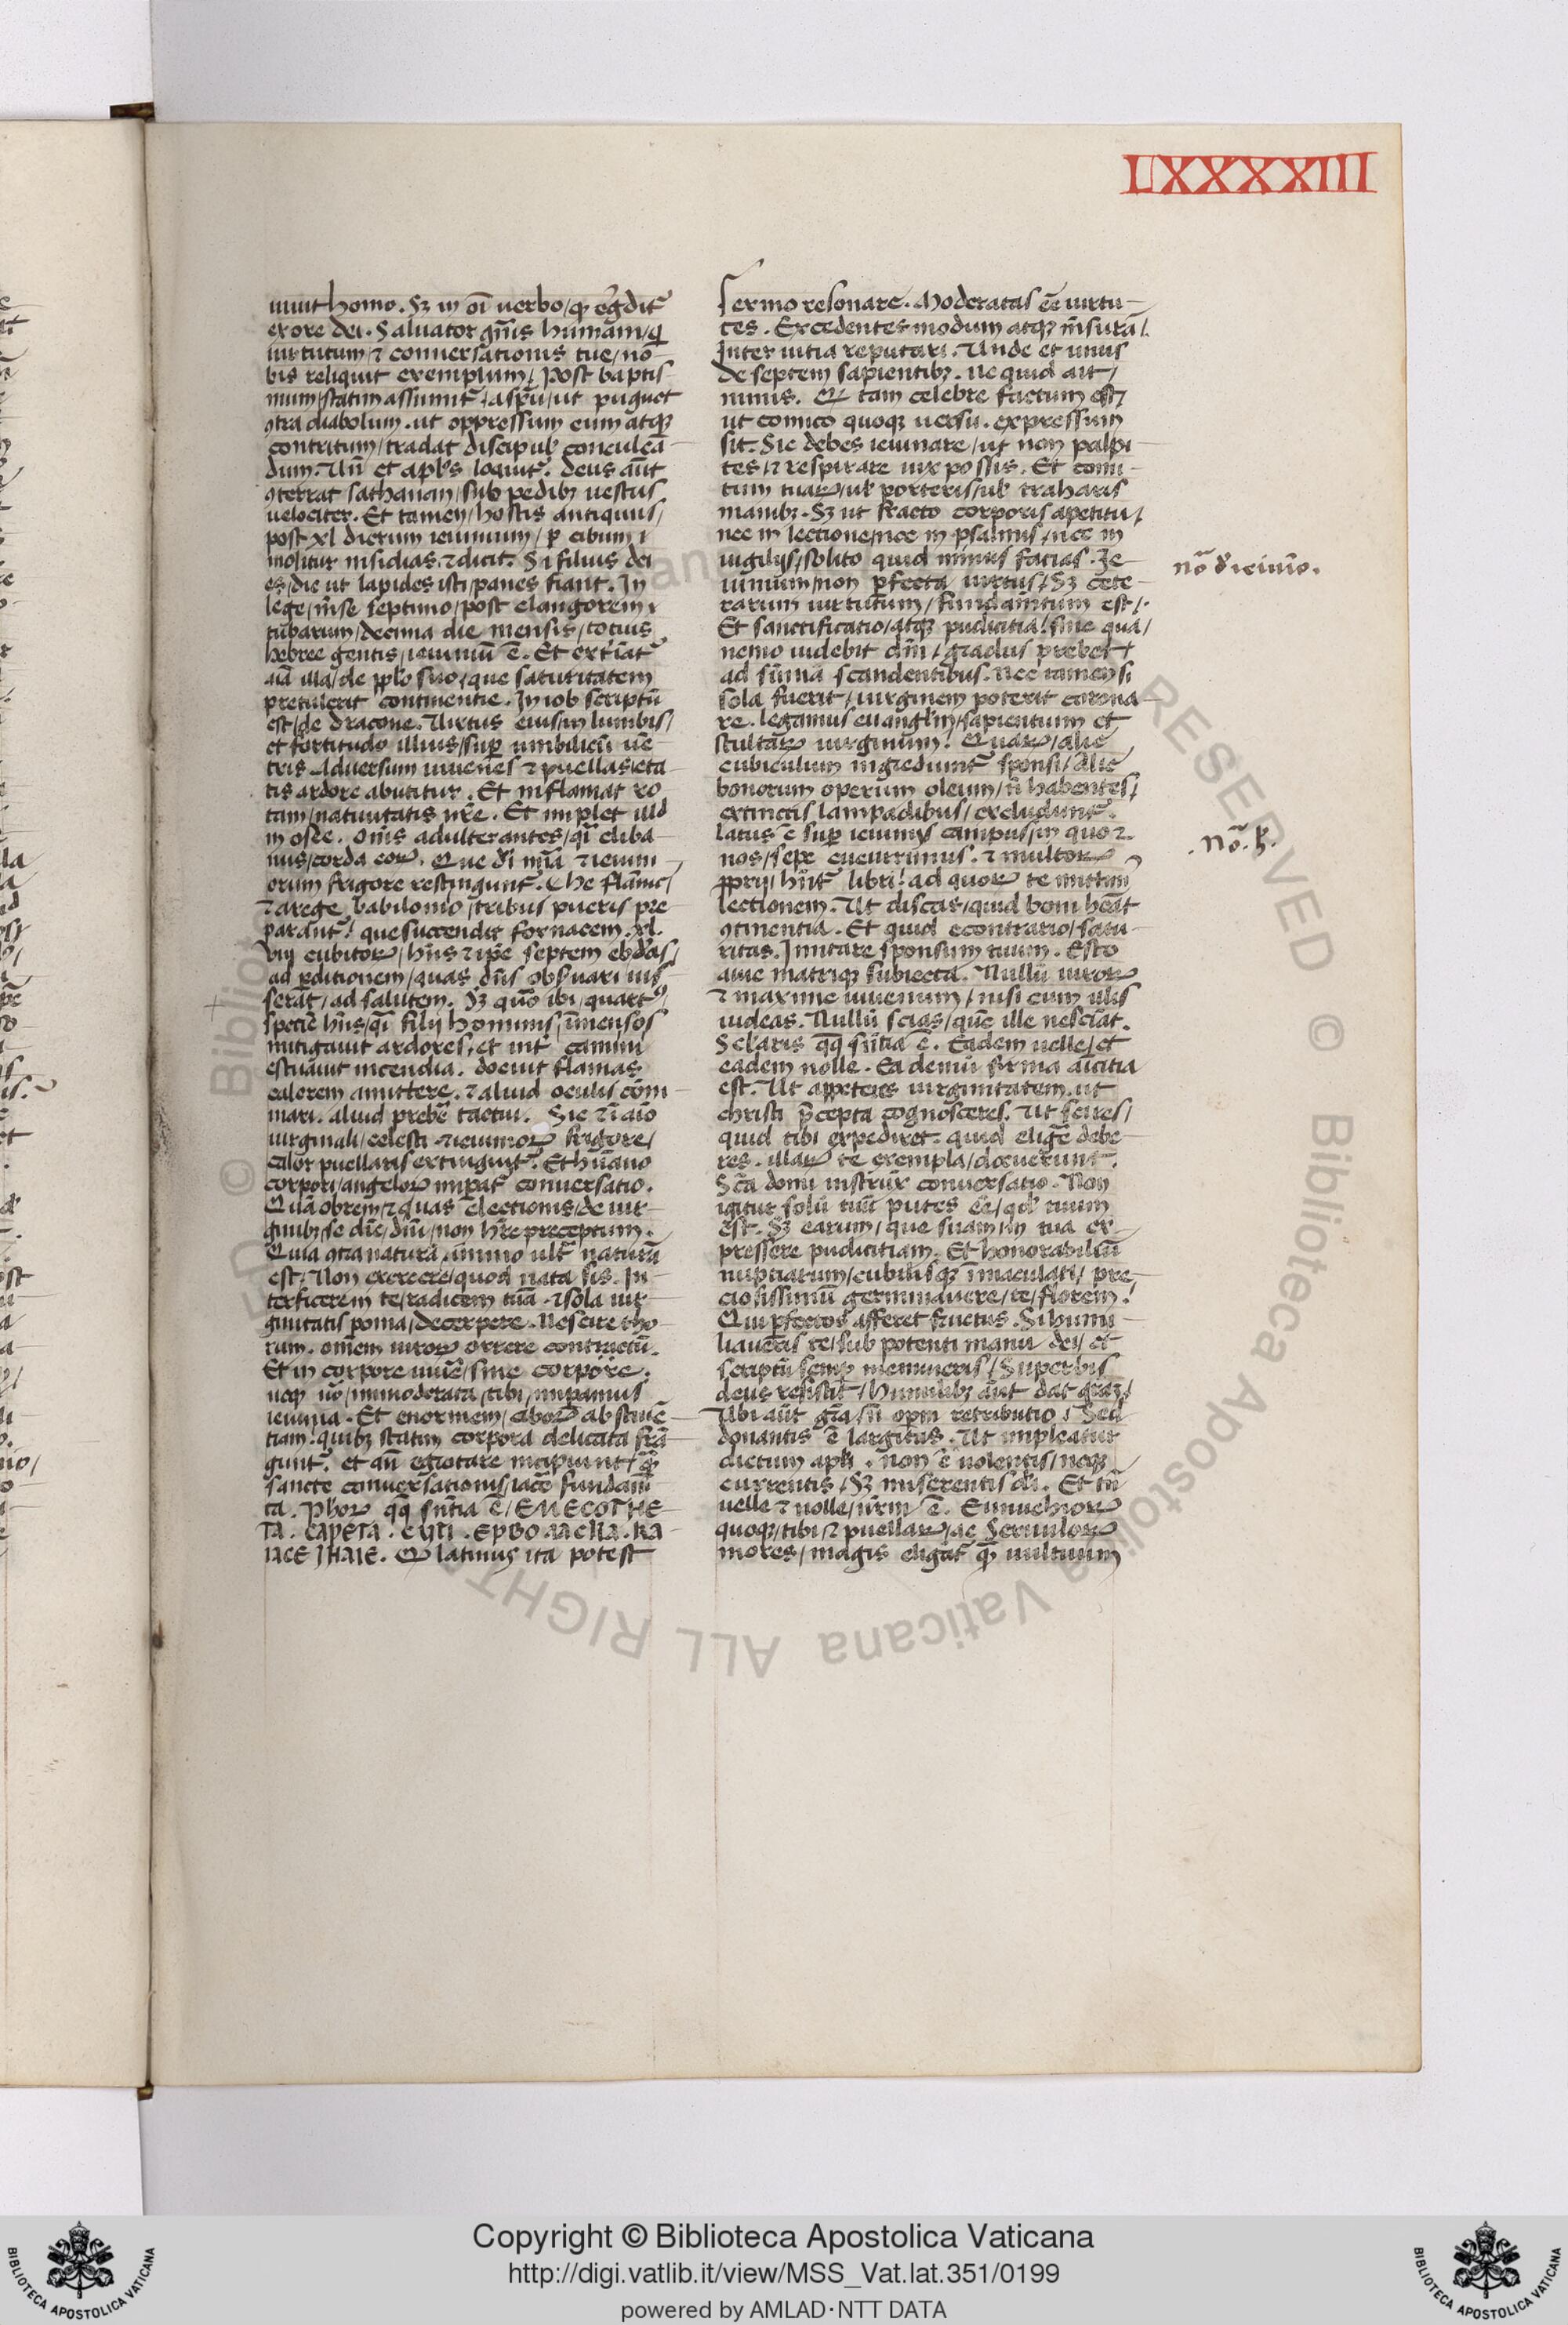 LXXXXIII
uiuit homo. Sꝫ in oı̄ uerbo/qꝫ eg̃dit᷑
ex ore dei. Saluator gn̄is humani/qi
uirtutum/⁊ conuersationis tue/no-
bis reliquit exemplum/Post baptis-
mum/statim assumit᷑/a sp̄u/ut pugnet
ꝯtra diabolum. ut oppressum eum atqꝫ
contritum/tradat discipul' conculcā-
dum. Un̄ et apl's loquit᷑. Deus aūt
ꝯterat sathanan/sub pedibꝫ uestris
uelociter. Et tamen/hostis antiquus/
post xl dierum ieiunium/ꝑ cibum/
molitur insidias. ⁊ dicit. Si filius dei
es/dic ut lapides isti/panes fiant. In
lege/mēse septimo/post clangorem/
tubarum/decima die mensis/totius
hebree gentis/ieiuniū ē. Et ext̄iat᷑
aīa illa/de pplo suo/que saturitatem
pretulerit continentie. In iob scriptū
est/de dracone. Uirtus eius/in lumbis/
et fortitudo illius/suꝑ umbilicū uē-
tris. Aduersum iuuenes ⁊ puellas/eta-
tis ardore abutitur. Et inflāmat ro-
tam/natiuitatis nr̄e. Et implet illd
in osee. Oīns adulterantes/qı̄ cliba-
nus/corda eoꝝ. Que dı̄ mı̄a ⁊ ieiuni-
orum frigore restingunt᷑. He flāme/
⁊ a rege babilonio/tribus pueris pre-
parant᷑! que succendit fornacem. xl.
viiij cubitoꝝ/hn̄s ⁊ ip̄e septem ebd̄as/
ad ꝑditionem/quas dn̄s obẜuari ius-
serat/ad salutem. Sꝫ quō ibi/quart᷒
speciē hn̄s/qı̄ filij hominis/īmensos
mitigauit ardores/et int̄ camini
estuantis incendia. docuit flāmas
calorem amittere. ⁊ aliud oculis cōmi-
nari. aliud prebē tactui. Sic ⁊ ī aīo
uirginali/celesti ⁊ ieiunioꝝ frigore/
calor puellaris extinguit᷑. Et hūano
corpori/angeloꝝ impat᷑ conuersatio.
Quāobrem/⁊ quas ēlectionis/de uir-
ginibꝫ/se dic̄/dn̄i/non hr̄e preceptum.
Quia ꝯtra naturā/immo ult᷑ naturā
est. Non exercere/quod nata sis. In-
terficerem te/radicem tuā. ⁊ sola uir-
ginitatis poma/decerpere. Nescire tho-
rum. omēm uiroꝝ orrere contactū.
Et in corpore uiuē/sine corpore.
neqꝫ uō/immoderata/tibi/imꝑamus
ieiunia. Et enormem/ciboꝝ abstinē-
tiam! quibꝫ statim corpora delicata frā-
gunt᷑. et an̄ egrotare incipiunt/qꝫ
sancte conuersationis/iacē fundam̄-
ta. Phoꝝ qqꝫ sn̄tia ē/EMECOTHE
TA. CAPETA. CYTI. EPBO.MACNA.KA-
IACE IHAIE. Qꝫ latinus ita potest
sermo resonare. Moderatas ēe uirtu-
tes. Excedentes modum atqꝫ m̄surā/
Inter uitia reputari. Unde et unus
de septem sapientibꝫ. ne quid ait/
nimis. Qꝫ tam celebre factum est/
ut comico quoqꝫ uersu. expressum
sit. Sic debes ieiunare/ut non palpi-
tes/⁊ respirare uix possis. Et comi-
tum tuaꝝ/ul' porteris/ul' traharis
manibꝫ. Sꝫ ut fracto corporis apetitu/
nec in lectione/nec in psalmis/nec in
uigilijs/solito quid minus facias. Ie-
iunium/non ꝑfecta uirtus/Sꝫ cete-
rarum uirtutum/fundam̄tum est/.
Et sanctificatio/atqꝫ pudicitia! sine qua/
nemo uidebit dn̄i/gradus prebet
ad sūma scandentibus. Nec tamen si
sola fuerit/uirginem poterit corona-
re. Legamus euangl'im/sapientium et
stultaꝝ uirginum! Quaꝝ/alie
cubiculum ingrediunt᷑ sponsi/alie
bonorum operum oleum/n̄ habentes/
extinctis lampadibus/excludunt᷑.
latus ē suꝑ ieiunijs campus/in quo ⁊
nos/sepe cucurrimus. ⁊ multoꝝ
ꝓprij/hn̄t᷑ libri! ad quoꝝ te mittam
lectionem. Ut discas/quid boni hēat
ꝯtinentia. Et quid econtrario/satu-
ritas. Imitare sponsum tuum. Esto
auie matriqꝫ subiecta. Nullū uiroꝝ
⁊ maxime iuuenum/nisi cum illis
uideas. Nullū scias/quē ille nesciat.
Selaris qqꝫ sn̄tia ē. Eadem uelle/et
eadem nolle. Ea demū firma aīcitia
est. Ut appeteres uirginitatem. ut
christi p̄cepta cognosceres. Ut scires/
quid tibi expediret. quid elig̃e debe-
res. illaꝝ te exempla/docuerunt.
Scā domi instrux̄ conuersatio. Non
igitur solū tuū putes ēe/qd' tuum
est. Sꝫ earum/que suam/in tua ex-
pressere pudicitiam. Et honorabiliū
nuptiarum/cubilisqꝫ īmaculati/pre-
ciosissimū germinauere/te/florem!
Qui ꝑfectos afferet fructus. Si humi-
liaueris te/sub potenti manu dei/et
scriptū semꝑ memineris/Superbis
deus resistit/humilibꝫ aūt dat gr̄aꝫ/
Ubi aūt gr̄a/n̄ opm retributio/Sed
donantis ē largitas. Ut impleatur
dictum apl'i. non ē uolentis/neqꝫ
currentis/Sꝫ miserentis dı̄. Et tn̄
uelle ⁊ nolle/nr̄m ē. Eunuchoꝝ
quoqꝫ/tibi/⁊ puellaꝝ/ac seruuloꝝ
mores/magis eligant᷑ qꝫ uultuum
nō d' ieiunio.
.nō. ħ.
Copyright © Biblioteca Apostolica Vaticana
http://digi.vatlib.it/view/MSS_Vat.lat.351/0199
powered by AMLAD·NTT DATA